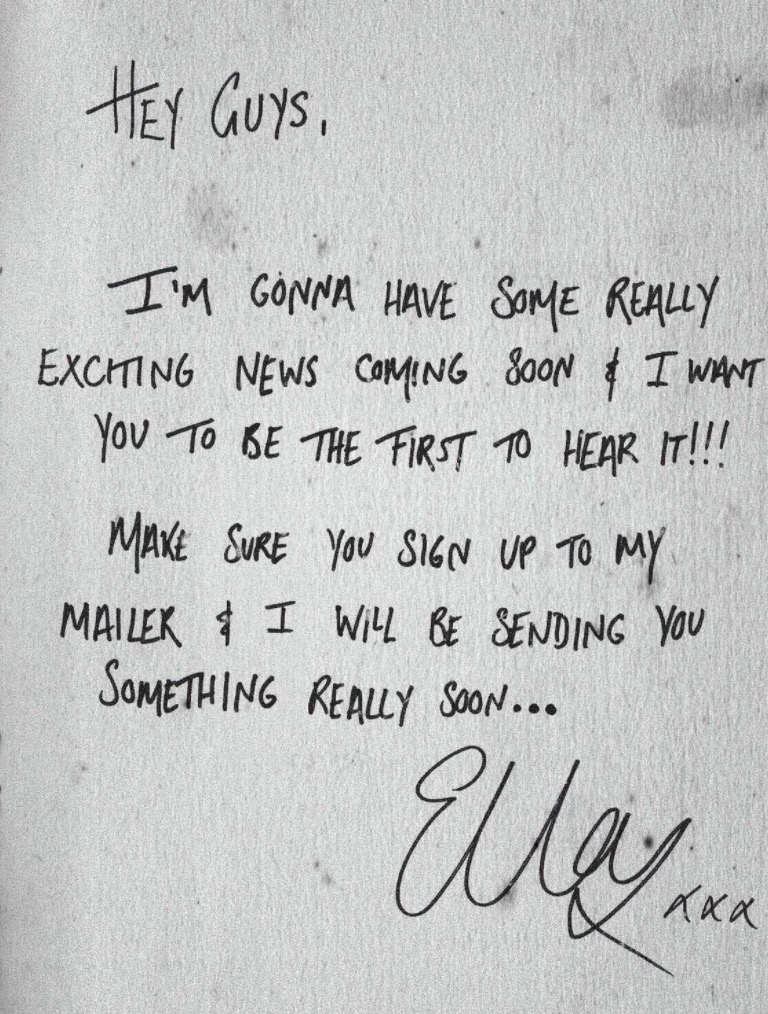 HEY GUYS,
I'M GONNA HAVE SOME REALLY
EXCITING NEWS COMING SOON & I WANT
YOU TO BE THE FIRST TO HEAR IT!!!
MAKE SURE YOU SIGN UP TO MY
MAILER & I WILL BE SENDING YOU
SOMETHING REALLY SOON...
Ella xxx